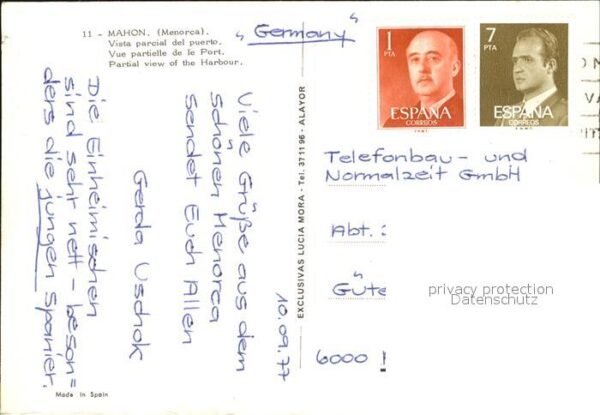 11 - MAHON. (Menorca).
Vista parcial del puerto.
Vue partielle de le Port.
Partial view of the Harbour.
"Germany"
1
PTA
ESPAÑA
CORREOS
7
PTA
ESPAÑA
CORREOS
10.09.77
Viele Grüße aus dem
Schönen Menorca
Sendet Euch Allen
Gerda Uschok
Die Einheimischen
sind sehr nett - beson=
ders die jungen Spanier.
EXCLUSIVAS LUCIA MORA - Tel. 371196 - ALAYOR
Telefonbau- und
Normalzeit GmbH
Abt.:
Güte
privacy protection
Datenschutz
6000 !
Made in Spain